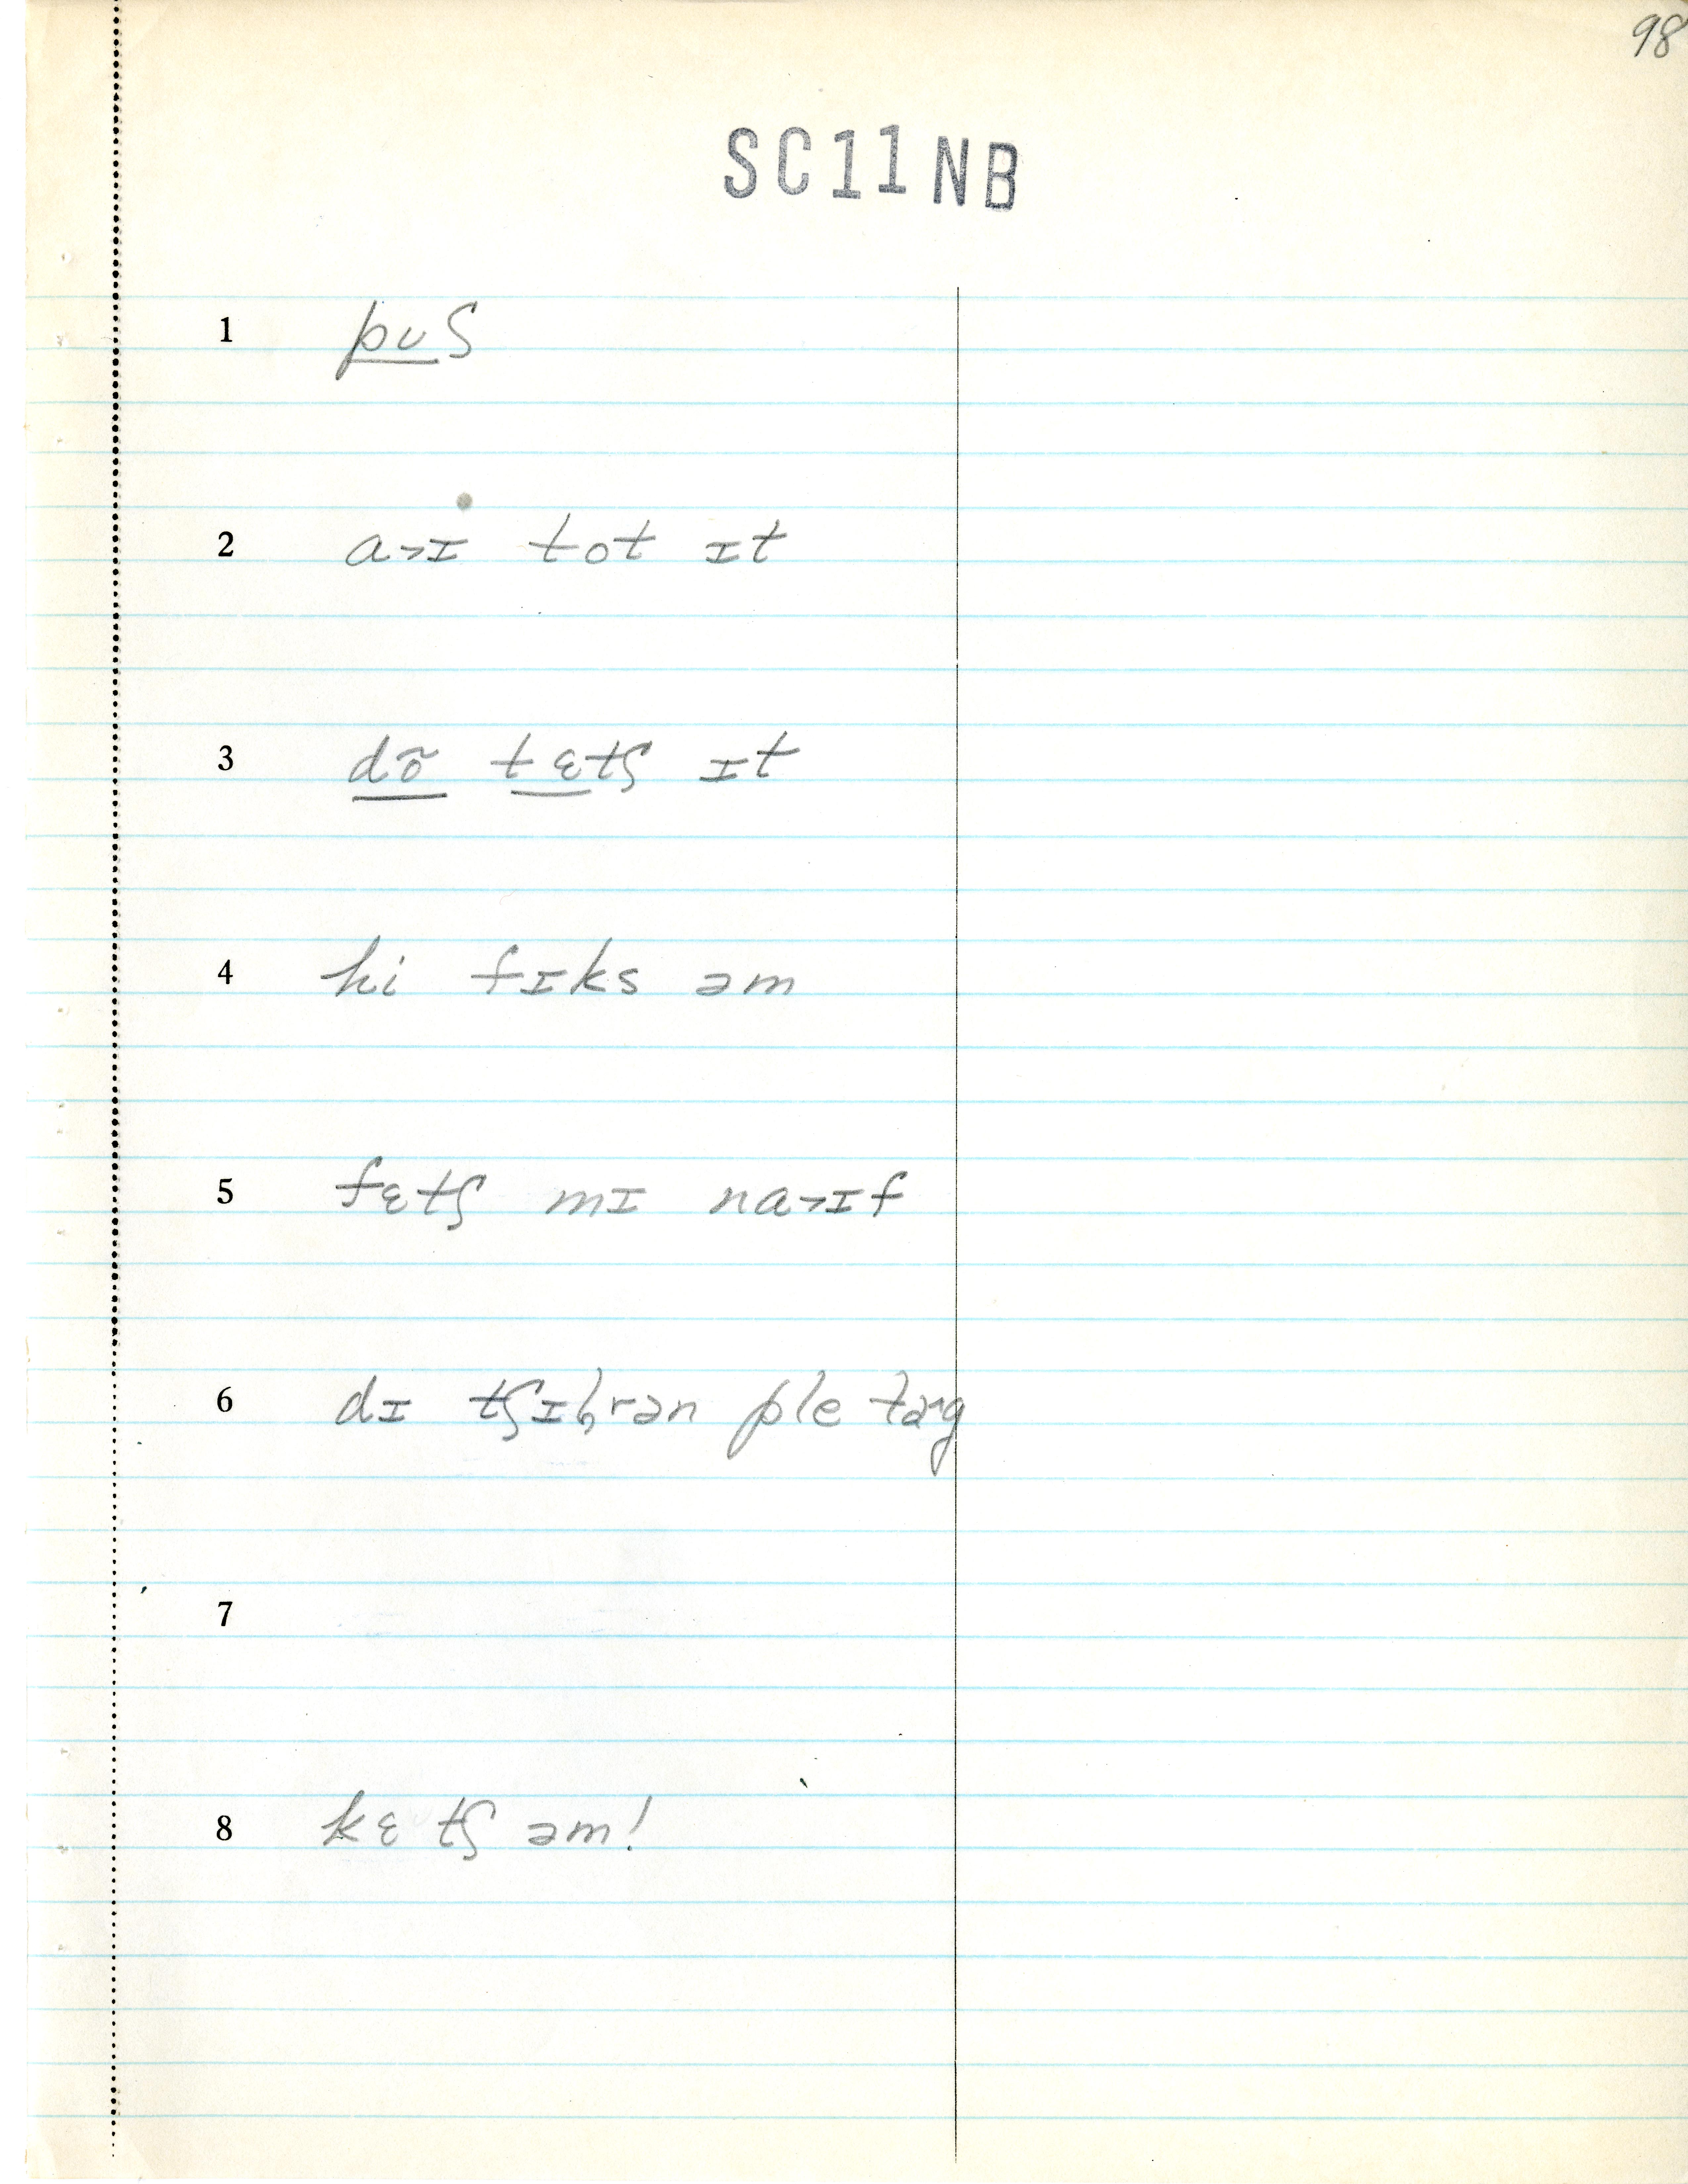 98
SC11NB
1 pʊʃ
2 a˃ɪ tot ɪt
3 dõ tɛtʃ ɪt
4 hi fɪks əm
5 fɛtʃ mɪ na˃ɪf
6 dɪ tʃɪlrən ple
7
8 kɛ tʃ əm!